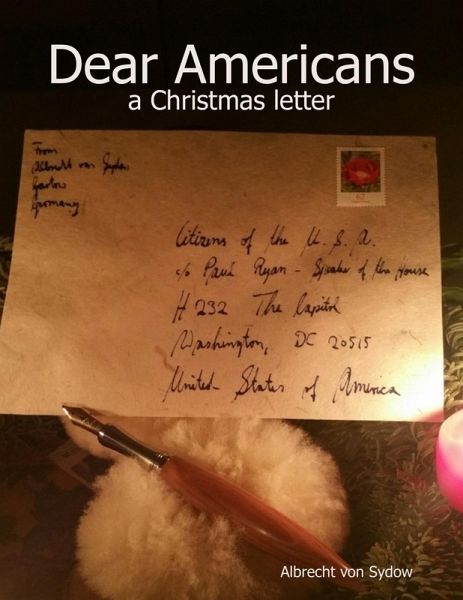 Dear Americans
a Christmas letter
From
Albrecht von Sydow
Gartow
Germany
62
Citizens of the U.S.A.
c/o Paul Ryan - Speaker of the House
H 232 The Capitol
Washington, DC 20515
United States of America
Albrecht von Sydow